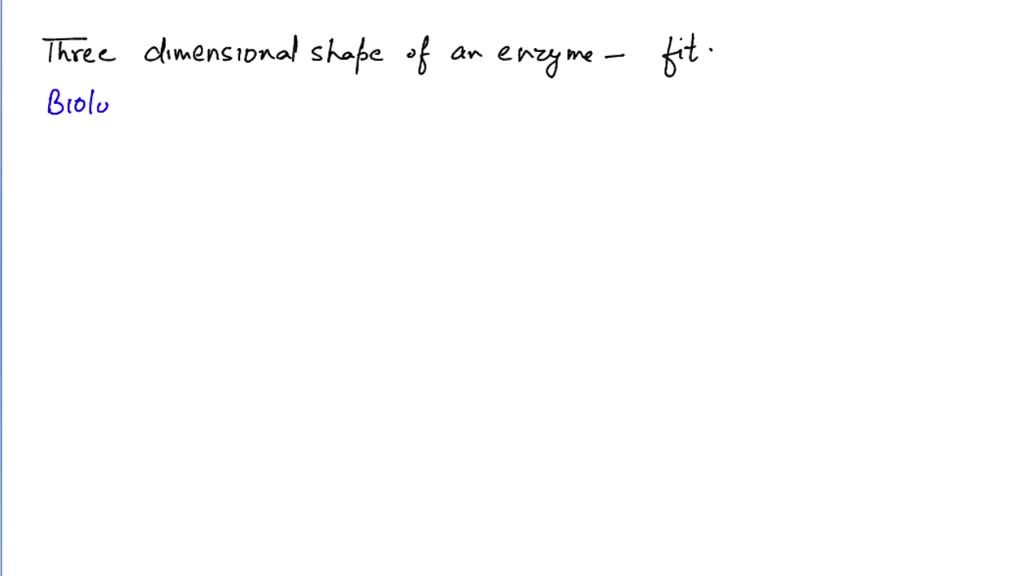 Three dimensional shape of an enzyme – fit.
Biolo